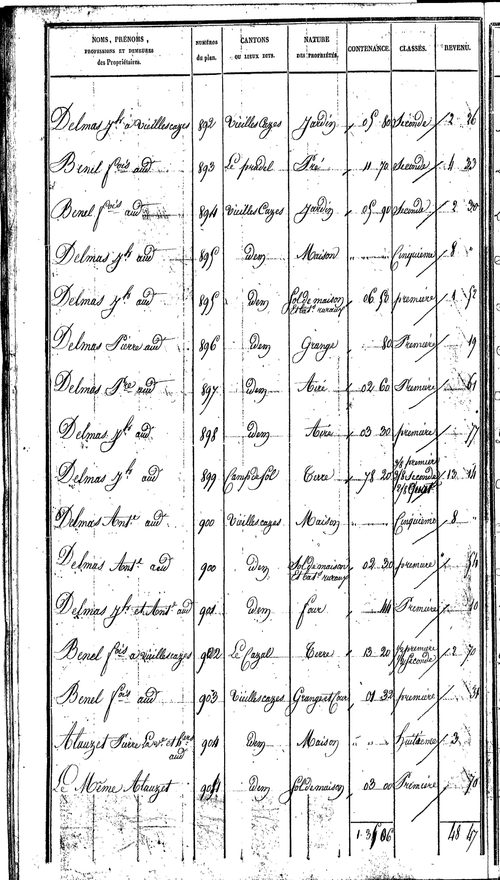 NOMS, PRÉNOMS, PROFESSIONS ET DEMEURES des Propriétaires. NUMÉROS du plan. CANTONS OU LIEUX DITS. NATURE DES PROPRIÉTÉS. CONTENANCE. CLASSES. REVENU.
Delmas Jh a Vieillescazes 892 Vieilles Cazes Jardin 05 80 Seconde 2 26
Benel fois aud 893 Le pradel Pré 11 70 Seconde 4 33
Benel fois aud 894 Vieilles Cazes Jardin 05 90 Seconde 2 30
Delmas Jh aud 895 idem Maison " " Cinquieme 8 "
Delmas Jh aud 895 idem Sol de maison et bats ruraux 06 53 premiere 1 52
Delmas Pierre aud 896 idem Grange 80 Premiere 19
Delmas Pre aud 897 idem Airé 02 60 Premiere 61
Delmas Jh aud 898 idem Aire 03 30 premiere 77
Delmas Jh aud 899 Camp del sol Terre 78 20 premiere Seconde 13 44
Delmas Ante aud 900 Vieillescazes Maison Cinquieme 8
Delmas Ante aud 900 idem Sol de maison et bats ruraux 02 30 premiere 54
Delmas Jh et Ante aud 901 idem four 44 Premiere 10
Benel fois a Vieillescazes 902 Le Cazal Terre 13 20 1/2 premiere 1/2 Seconde 2 70
Benel fois aud 903 Vieillescazes Grange et Cour 01 32 premiere 31
Alauzet Pierre La ve et hers aud 904 idem Maison " " huitieme 3
Le Même Alauzet 904 idem Sol de maison 03 00 Premiere 70
48 47